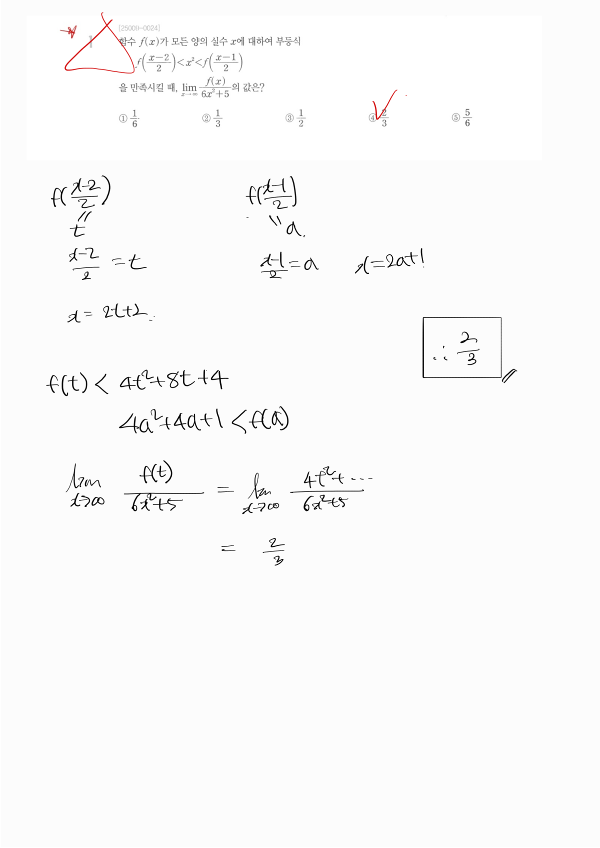 [25009-0024]
1
함수 f(x)가 모든 양의 실수 x에 대하여 부등식
f((x-2)/2)<x²<f((x-1)/2)
을 만족시킬 때, lim x→∞ f(x)/(6x²+5)의 값은?
① 1/6 ② 1/3 ③ 1/2 ④ 2/3 ⑤ 5/6
f((x-2)/2) f((x-1)/2)
= t = a.
(x-2)/2 = t (x-1)/2 = a x=2a+1
x = 2t+2
∴ 2/3
f(t) < 4t²+8t+4
4a²+4a+1 < f(a)
lim x→∞ f(t)/(6x²+5) = lim x→∞ (4t²+ ⋯)/(6x²+5)
= 2/3